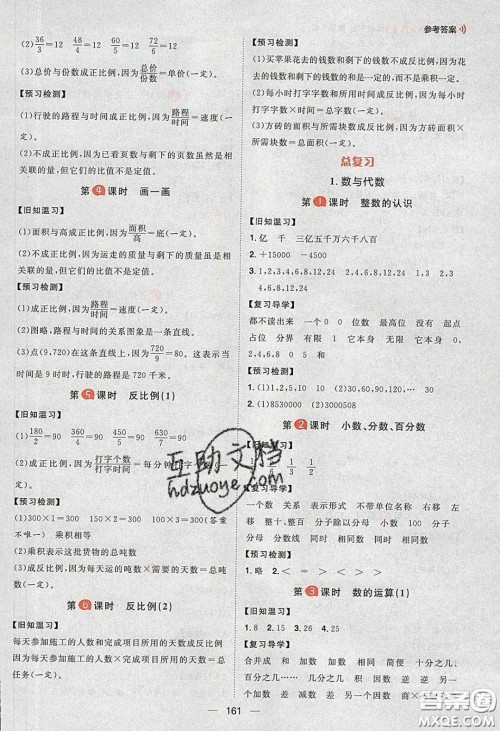 参考答案
(2) 36/3=12 60/5=12 72/6=12
(3)总价与份数成正比例,因为总价/份数=单价(一定)。
【预习检测】
(1)行驶的路程与时间成正比例,因为路程/时间=速度(一定)。
(2)不成正比例,因为已看页数与剩下的页数虽然是相
关联的量,但它们的比值不是定值。
第4课时 画一画
【旧知温习】
(1)面积与高成正比例,因为面积/高=底(一定)。
(2)不成正比例,因为运走的质量与剩下的质量虽然是
相关联的量,但它们的比值不是定值。
【预习检测】
(1)成正比例,因为路程/时间=速度(一定)。
(2)图略,路程与时间的关系图象是一条直线。
(3)点(9,720)在这条直线上,因为720/9=80。这表示
当时间是9时时,行驶的路程是720千米。
第5课时 反比例(1)
【旧知温习】
(1)180/2=90 360/4=90 450/5=90
(2)成正比例,因为打字个数/打字时间=每分钟
(一定)。
【预习检测】
(1)300×1=300 150×2=300 100×3=300(答案
不唯一) 乘积相等
(2)乘积表示这批货物的总吨数
(3)成反比例,因为每天运的吨数×天数=总吨数
(一定)。
第6课时 反比例(2)
【旧知温习】
每天参加施工的人数和完成项目所用的天数成反比例,
因为每天参加施工的人数×完成项目所用的天数=总
任务(一定)。
【预习检测】
(1)买苹果花去的钱数和剩下的钱数不成反比例,因为花
去的钱数和剩下的钱数的和是一定的,而不是乘积一定。
(2)每小时打字字数和所用时间成反比例,因为每小时
打字字数×时间=总字数(一定)。
(3)方砖面积与所需块数成反比例,因为方砖面积×
所需块数=总面积(一定)。
总复习
1.数与代数
第1课时 整数的认识
【旧知温习】
1.亿 千 三亿五千万六千八百
2.+15000 -4500
3.1,2,3,4,6,8,12,24 1,2,3,4,6,8,12,24
2,4,6,8,12,24
【复习导学】
都不读出来 一个0 0 位数 最高位 没有 起点
占位 分界 有限 1 它本身 无限 它本身 0,
2,4,6,8 0 5
【预习检测】
1.(1)1,2,5,10 10,20,30,60 … 30
2.(1)8530000 (2)3180000
第2课时 小数、分数、百分数
【旧知温习】
【复习导学】
分数 0 表示形式 不带单位名称 右移 扩
左 整十、整百 分子除以分母 小数 100 分子
分母 曲线 同时 相同数 同时 相同数
【预习检测】
1.略 2.< = > > < >
第3课时 数的运算(1)
【旧知温习】
1.8 2.15 3.26 4.25
【复习导学】
合并成 和 加数 加数 相同 简便 十分之几、
百分之几、千分之几…… 因数 逆 差 减数 逆
一个加数 差 减数 差 积 另一个因数 商 除数
161
互助文档
hdzuoye.com
答案圈
MXQE.COM